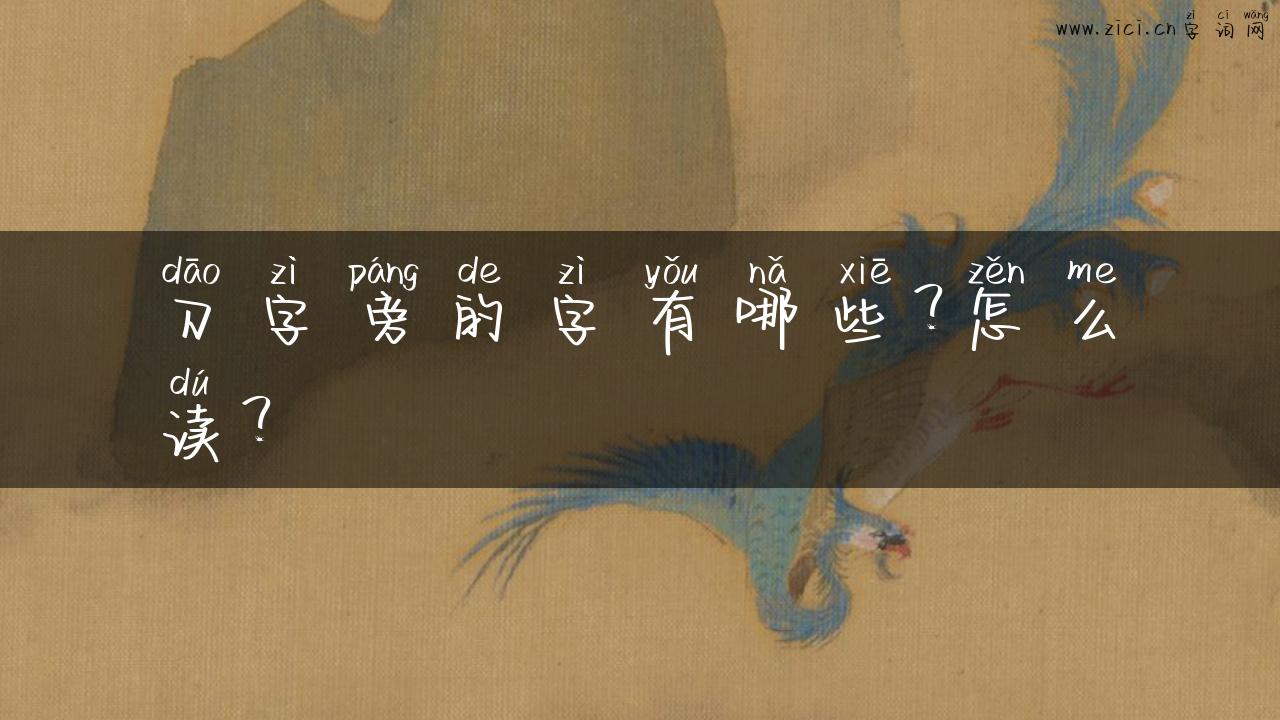 zì cí wǎng
www.zici.cn 字词网
dāo zì páng de zì yǒu nǎ xiē zěn me
刀字旁的字有哪些?怎么
dú
读?